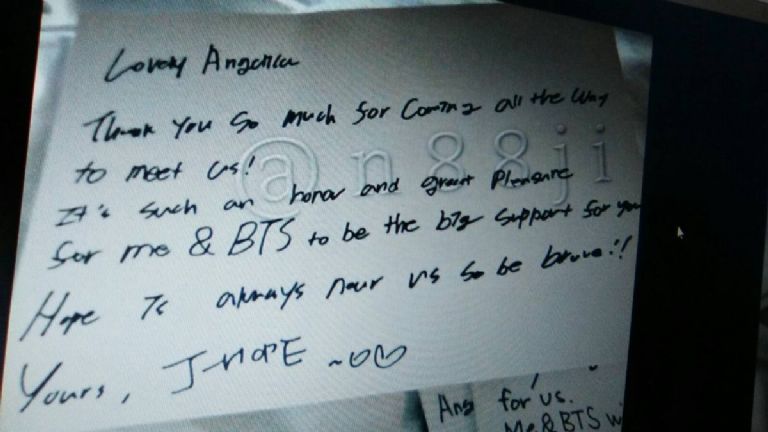 Lovely Angelica
Thank you so much for coming all the way
to meet us!
It's such an honor and great pleasure
for me & BTS to be the big support for you
Hope is always near us so be brave!!
Yours, J-HOPE ~♡♡
@n88ji
Ang
for us.
Me & BTS w